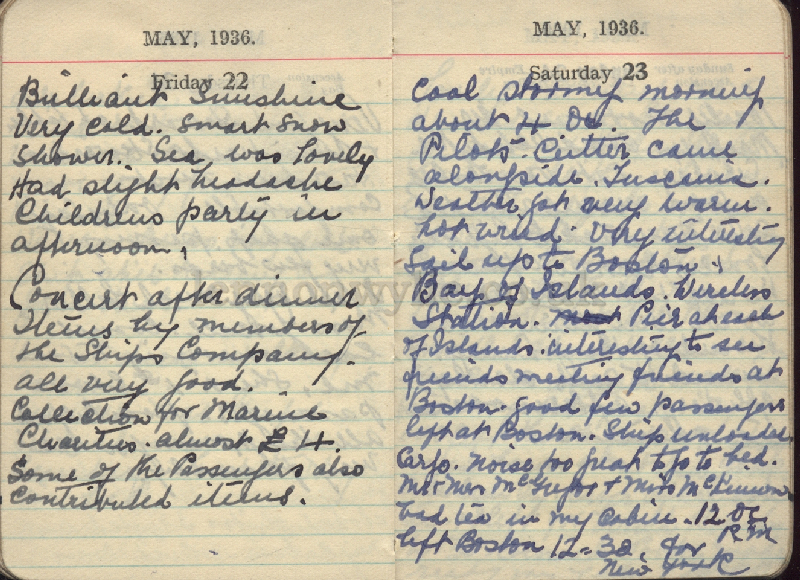 MAY, 1936.
Friday 22
Brilliant Sunshine
Very cold. Smart Snow
Shower. Sea was lovely
Had slight headache
Childrens party in
afternoon.
Concert after dinner
Items by members of
the Ships Company.
all very good.
Collection for Marine
Charities. almost £4.
Some of the Passengers also
contributed items.
MAY, 1936.
Saturday 23
Cool stormy morning
about 4 Oc. The
Pilots. Cutter came
alongside. Tuscania.
Weather got very warm.
hot wind. Very interesting
Sail up to Boston
Bay of Islands. Wireless
Station. Pier at each
of Islands. interesting to see
friends meeting friends at
Boston. Good few passengers
left at Boston. Ship unloaded
Cargo. Noise too great to go to bed.
Mr & Mrs McGregor & Miss McKinnon
had tea in my cabin. 12 Oc.
left Boston 12-30. for
New York